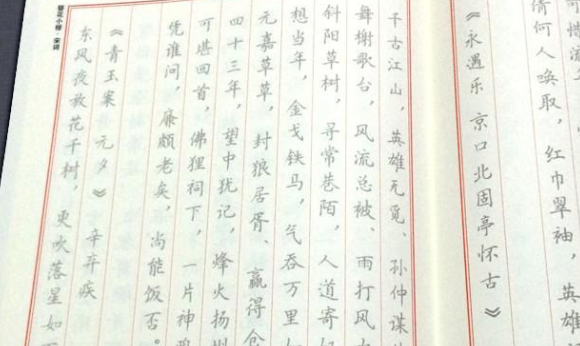 可惜流
倩何人唤取，红巾翠袖，英雄
《永遇乐 京口北固亭怀古》
千古江山，英雄无觅，孙仲谋
舞榭歌台，风流总被、雨打风
斜阳草树，寻常巷陌，人道寄
想当年，金戈铁马，气吞万里如
元嘉草草，封狼居胥、赢得仓
四十三年，望中犹记，烽火扬州
可堪回首，佛狸祠下，一片神鸦
凭谁问，廉颇老矣，尚能饭否。
《青玉案 元夕》 辛弃疾
东风夜放花千树，更吹落星如
簪花小楷·宋词